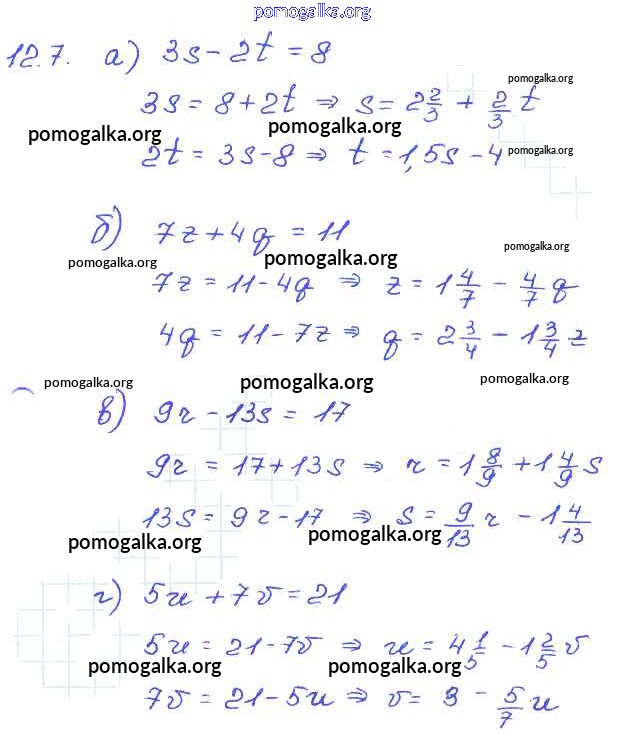 pomogalka.org
12.7. а) 3s - 2t = 8
pomogalka.org
3s = 8 + 2t ⇒ s = 2 2/3 + 2/3 t
pomogalka.org pomogalka.org
2t = 3s - 8 ⇒ t = 1,5s - 4 pomogalka.org
б) 7z + 4q = 11
pomogalka.org pomogalka.org pomogalka.org
7z = 11 - 4q ⇒ z = 1 4/7 - 4/7 q
4q = 11 - 7z ⇒ q = 2 3/4 - 1 3/4 z
pomogalka.org pomogalka.org pomogalka.org
в) 9r - 13s = 17
9r = 17 + 13s ⇒ r = 1 8/9 + 1 4/9 s
13s = 9r - 17 ⇒ s = 9/13 r - 1 4/13
pomogalka.org pomogalka.org
г) 5u + 7v = 21
5u = 21 - 7v ⇒ u = 4 1/5 - 1 2/5 v
pomogalka.org pomogalka.org
7v = 21 - 5u ⇒ v = 3 - 5/7 u